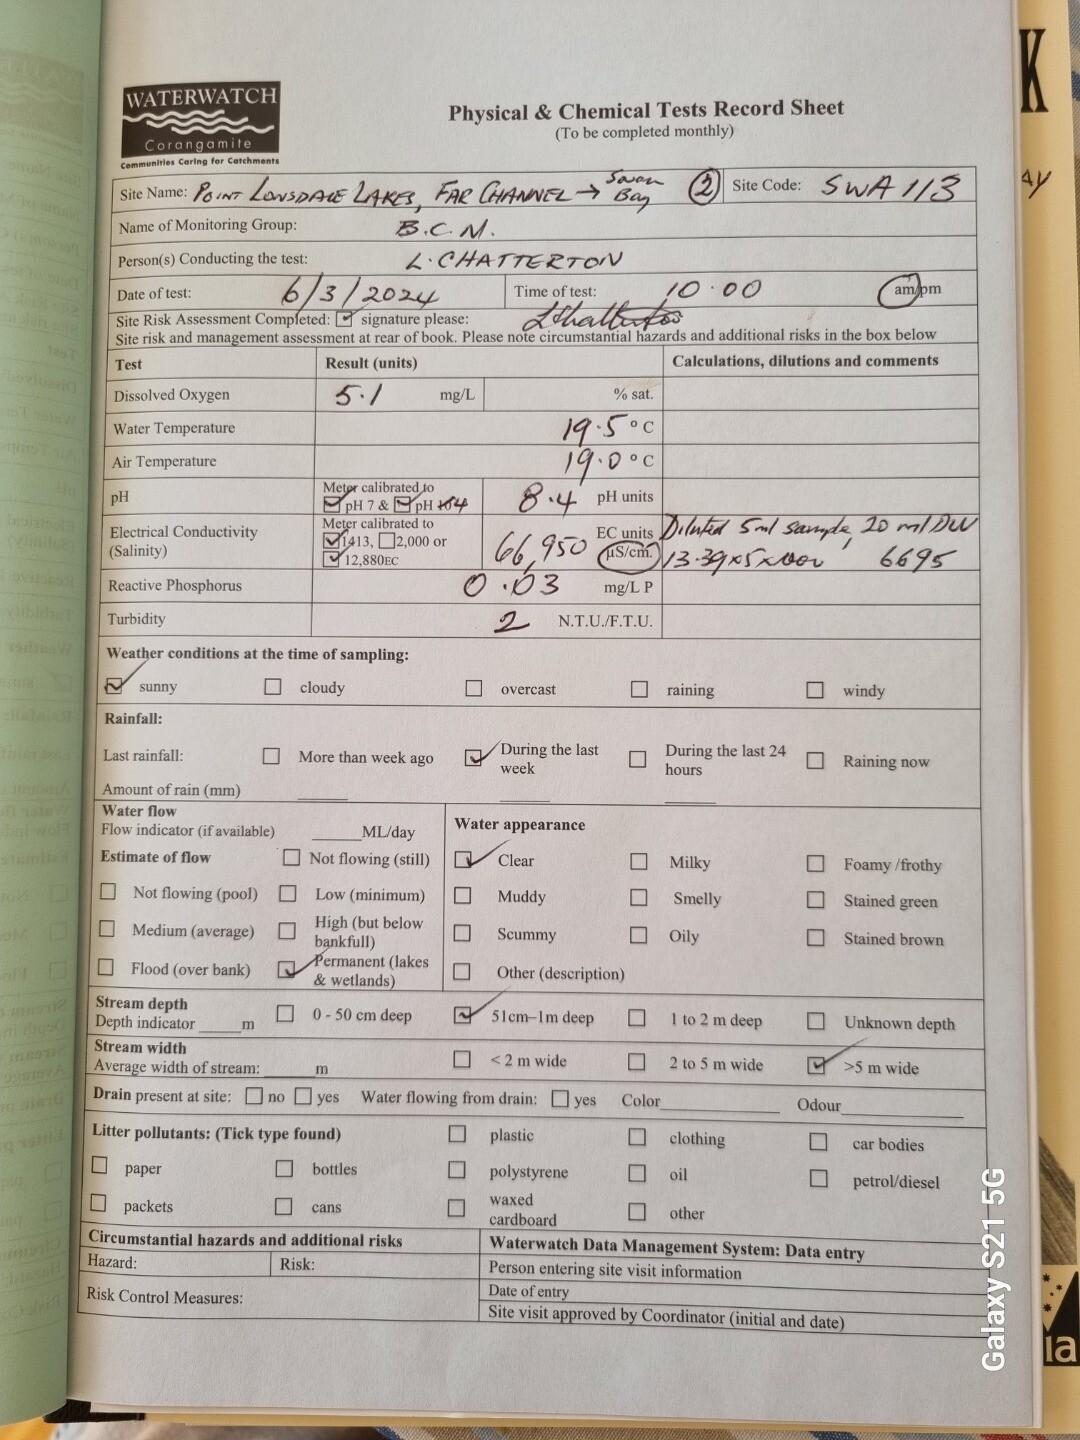 WATERWATCH
Corangamite
Communities Caring for Catchments
Physical & Chemical Tests Record Sheet
(To be completed monthly)
Site Name: POINT LONSDALE LAKES, FAR CHANNEL → Swan Bay (2) Site Code: SWA 113
Name of Monitoring Group: B.C.M.
Person(s) Conducting the test: L. CHATTERTON
Date of test: 6/3/2024 Time of test: 10.00 am/pm
Site Risk Assessment Completed: signature please: LChatterton
Site risk and management assessment at rear of book. Please note circumstantial hazards and additional risks in the box below
Test Result (units) Calculations, dilutions and comments
Dissolved Oxygen 5.1 mg/L % sat.
Water Temperature 19.5 °C
Air Temperature 19.0 °C
pH Meter calibrated to pH 7 & pH 4 8.4 pH units
Electrical Conductivity (Salinity) Meter calibrated to 1413, 2,000 or 12,880EC 66,950 EC units µS/cm. Diluted 5ml sample, 20 ml DW
13.39x5x1000 6695
Reactive Phosphorus 0.03 mg/L P
Turbidity 2 N.T.U./F.T.U.
Weather conditions at the time of sampling:
sunny cloudy overcast raining windy
Rainfall:
Last rainfall: More than week ago During the last week During the last 24 hours Raining now
Amount of rain (mm)
Water flow
Flow indicator (if available) ML/day
Estimate of flow Not flowing (still)
Not flowing (pool) Low (minimum)
Medium (average) High (but below bankfull)
Flood (over bank) Permanent (lakes & wetlands)
Water appearance
Clear Milky Foamy /frothy
Muddy Smelly Stained green
Scummy Oily Stained brown
Other (description)
Stream depth
Depth indicator m 0 - 50 cm deep 51cm–1m deep 1 to 2 m deep Unknown depth
Stream width
Average width of stream: m < 2 m wide 2 to 5 m wide >5 m wide
Drain present at site: no yes Water flowing from drain: yes Color Odour
Litter pollutants: (Tick type found) plastic clothing car bodies
paper bottles polystyrene oil petrol/diesel
packets cans waxed cardboard other
Circumstantial hazards and additional risks
Hazard: Risk:
Risk Control Measures:
Waterwatch Data Management System: Data entry
Person entering site visit information
Date of entry
Site visit approved by Coordinator (initial and date)
Galaxy S21 5G